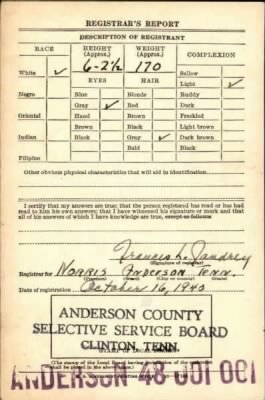 REGISTRAR'S REPORT
DESCRIPTION OF REGISTRANT
RACE HEIGHT (Approx.) WEIGHT (Approx.) COMPLEXION
6-2½ 170
White ✓ Sallow
EYES HAIR Light ✓
Negro Blue Blonde Ruddy
Gray ✓ Red Dark
Oriental Hazel Brown Freckled
Brown Black Light brown
Indian Black Gray ✓ Dark brown
Bald Black
Filipino
Other obvious physical characteristics that will aid in identification
I certify that my answers are true; that the person registered has read or has had
read to him his own answers; that I have witnessed his signature or mark and that
all of his answers of which I have knowledge are true, except as follows:
Frances L.
(Signature of registrar)
Registrar for Norris Anderson Tenn.
(Precinct) (City or county) (State)
Date of registration October 16, 1940
ANDERSON COUNTY
SELECTIVE SERVICE BOARD
CLINTON, TENN.
STAMP OF LOCAL
(The stamp of the Local Board having jurisdiction of the registrant
shall be placed in the above space.)
ANDERSON 48 001 001